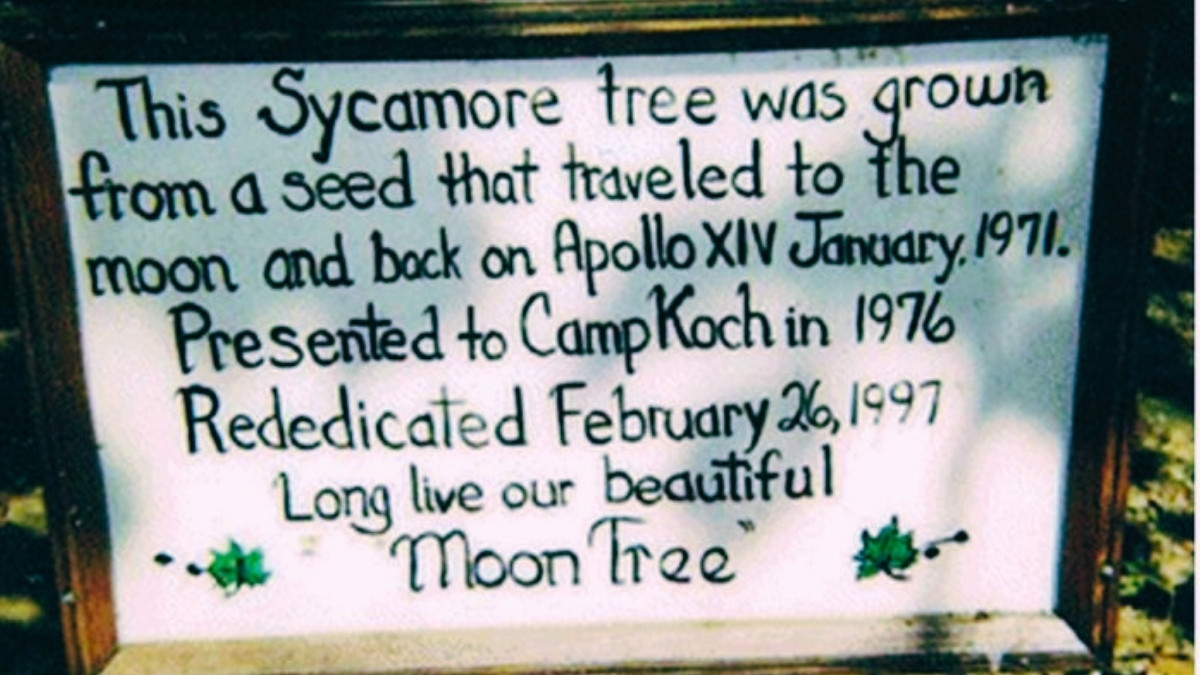 This Sycamore tree was grown
from a seed that traveled to the
moon and back on Apollo XIV January, 1971.
Presented to Camp Koch in 1976
Rededicated February 26, 1997
Long live our beautiful
"Moon Tree"